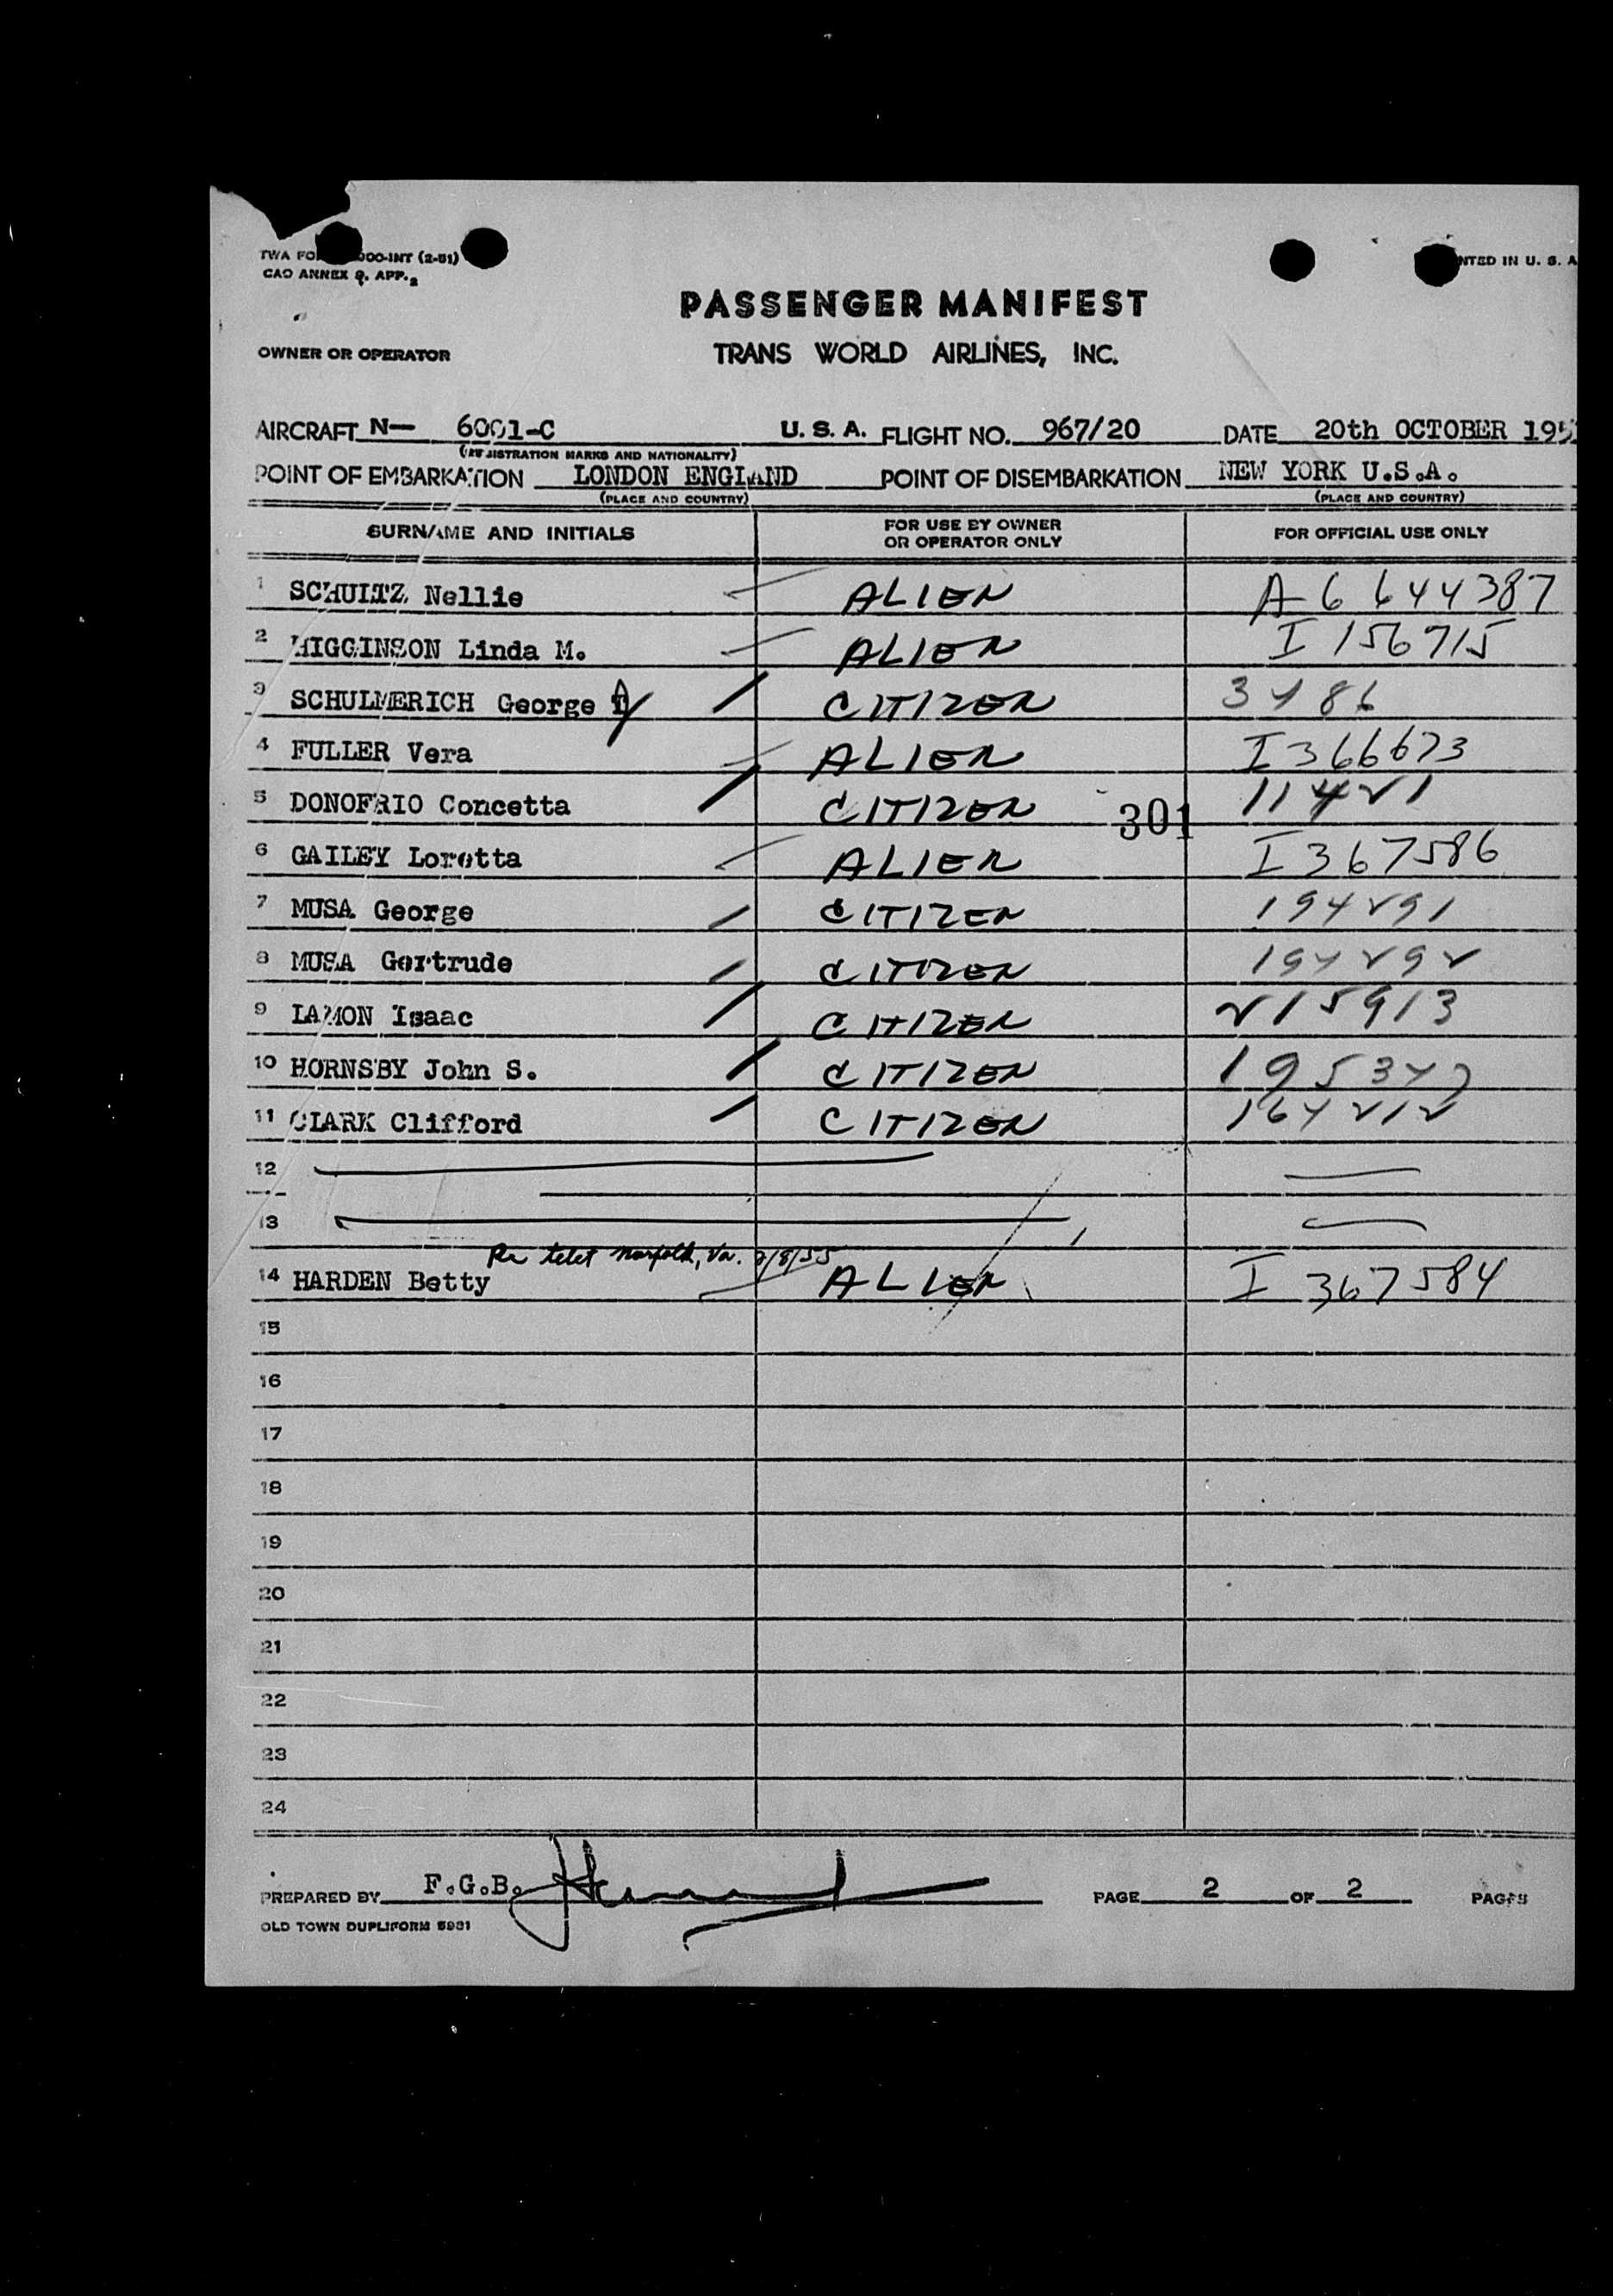 TWA FO 000-INT (2-51)
CAO ANNEX 9, APP. 2
NTED IN U. S. A
PASSENGER MANIFEST
OWNER OR OPERATOR TRANS WORLD AIRLINES, INC.
AIRCRAFT N— 6001-C U. S. A. FLIGHT NO. 967/20 DATE 20th OCTOBER 195
(REGISTRATION MARKS AND NATIONALITY)
POINT OF EMBARKATION LONDON ENGLAND POINT OF DISEMBARKATION NEW YORK U.S.A.
(PLACE AND COUNTRY) (PLACE AND COUNTRY)
SURNAME AND INITIALS FOR USE BY OWNER OR OPERATOR ONLY FOR OFFICIAL USE ONLY
1 SCHULTZ Nellie ALIEN A6 644387
2 HIGGINSON Linda M. ALIEN I 156715
3 SCHULMERICH George A CITIZEN 3486
4 FULLER Vera ALIEN I366673
5 DONOFRIO Concetta CITIZEN 11421
301
6 GAILEY Loretta ALIEN I 367586
7 MUSA George CITIZEN 194291
8 MUSA Gertrude CITIZEN 194292
9 LAMON Isaac CITIZEN 215913
10 HORNSBY John S. CITIZEN
11 CLARK Clifford CITIZEN 164212
12
13
Re telet Norfolk, Va. 2/8/55
14 HARDEN Betty ALIEN I 367584
15
16
17
18
19
20
21
22
23
24
PREPARED BY F.G.B. PAGE 2 OF 2 PAGES
OLD TOWN DUPLIFORM 5931